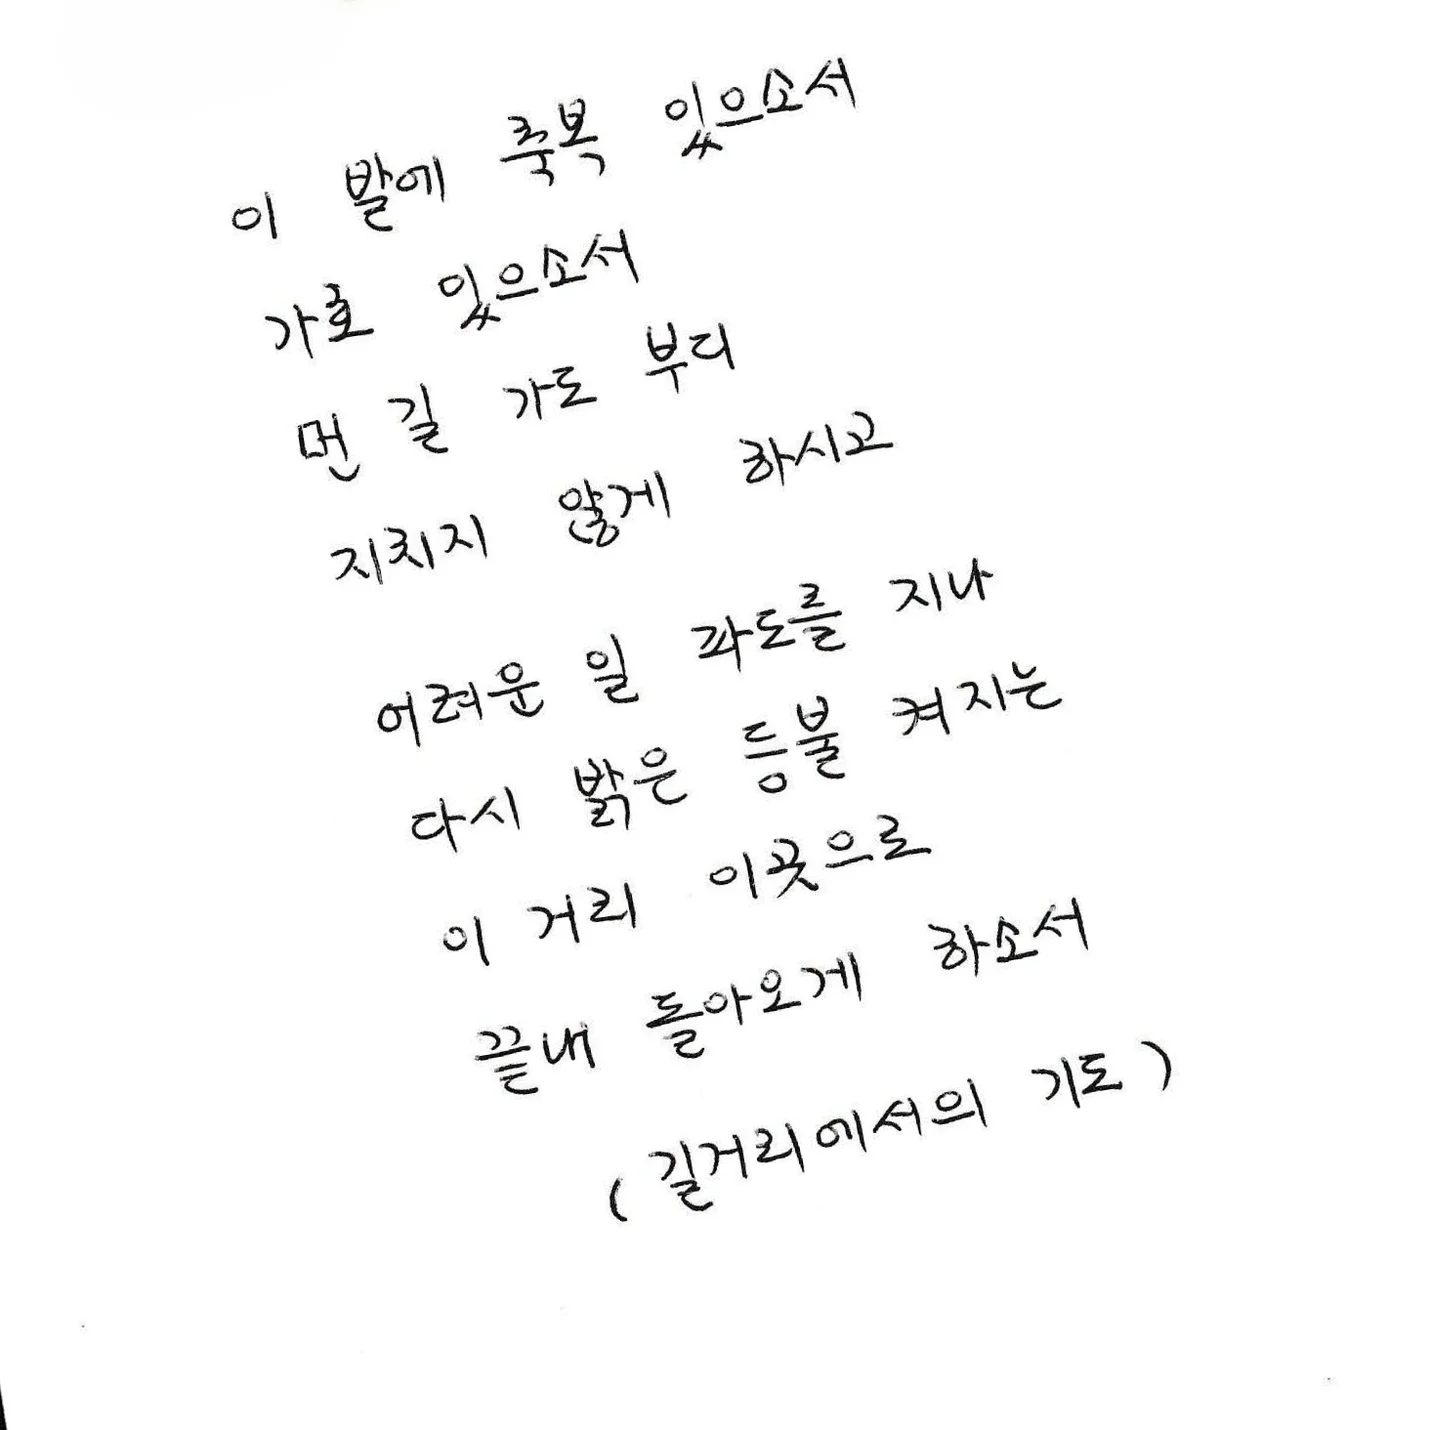 이 발에 축복 있으소서
가호 있으소서
먼 길 가도 부디
지치지 않게 하시고
어려운 일 파도를 지나
다시 밝은 등불 켜지는
이 거리 이곳으로
끝내 돌아오게 하소서
(길거리에서의 기도)